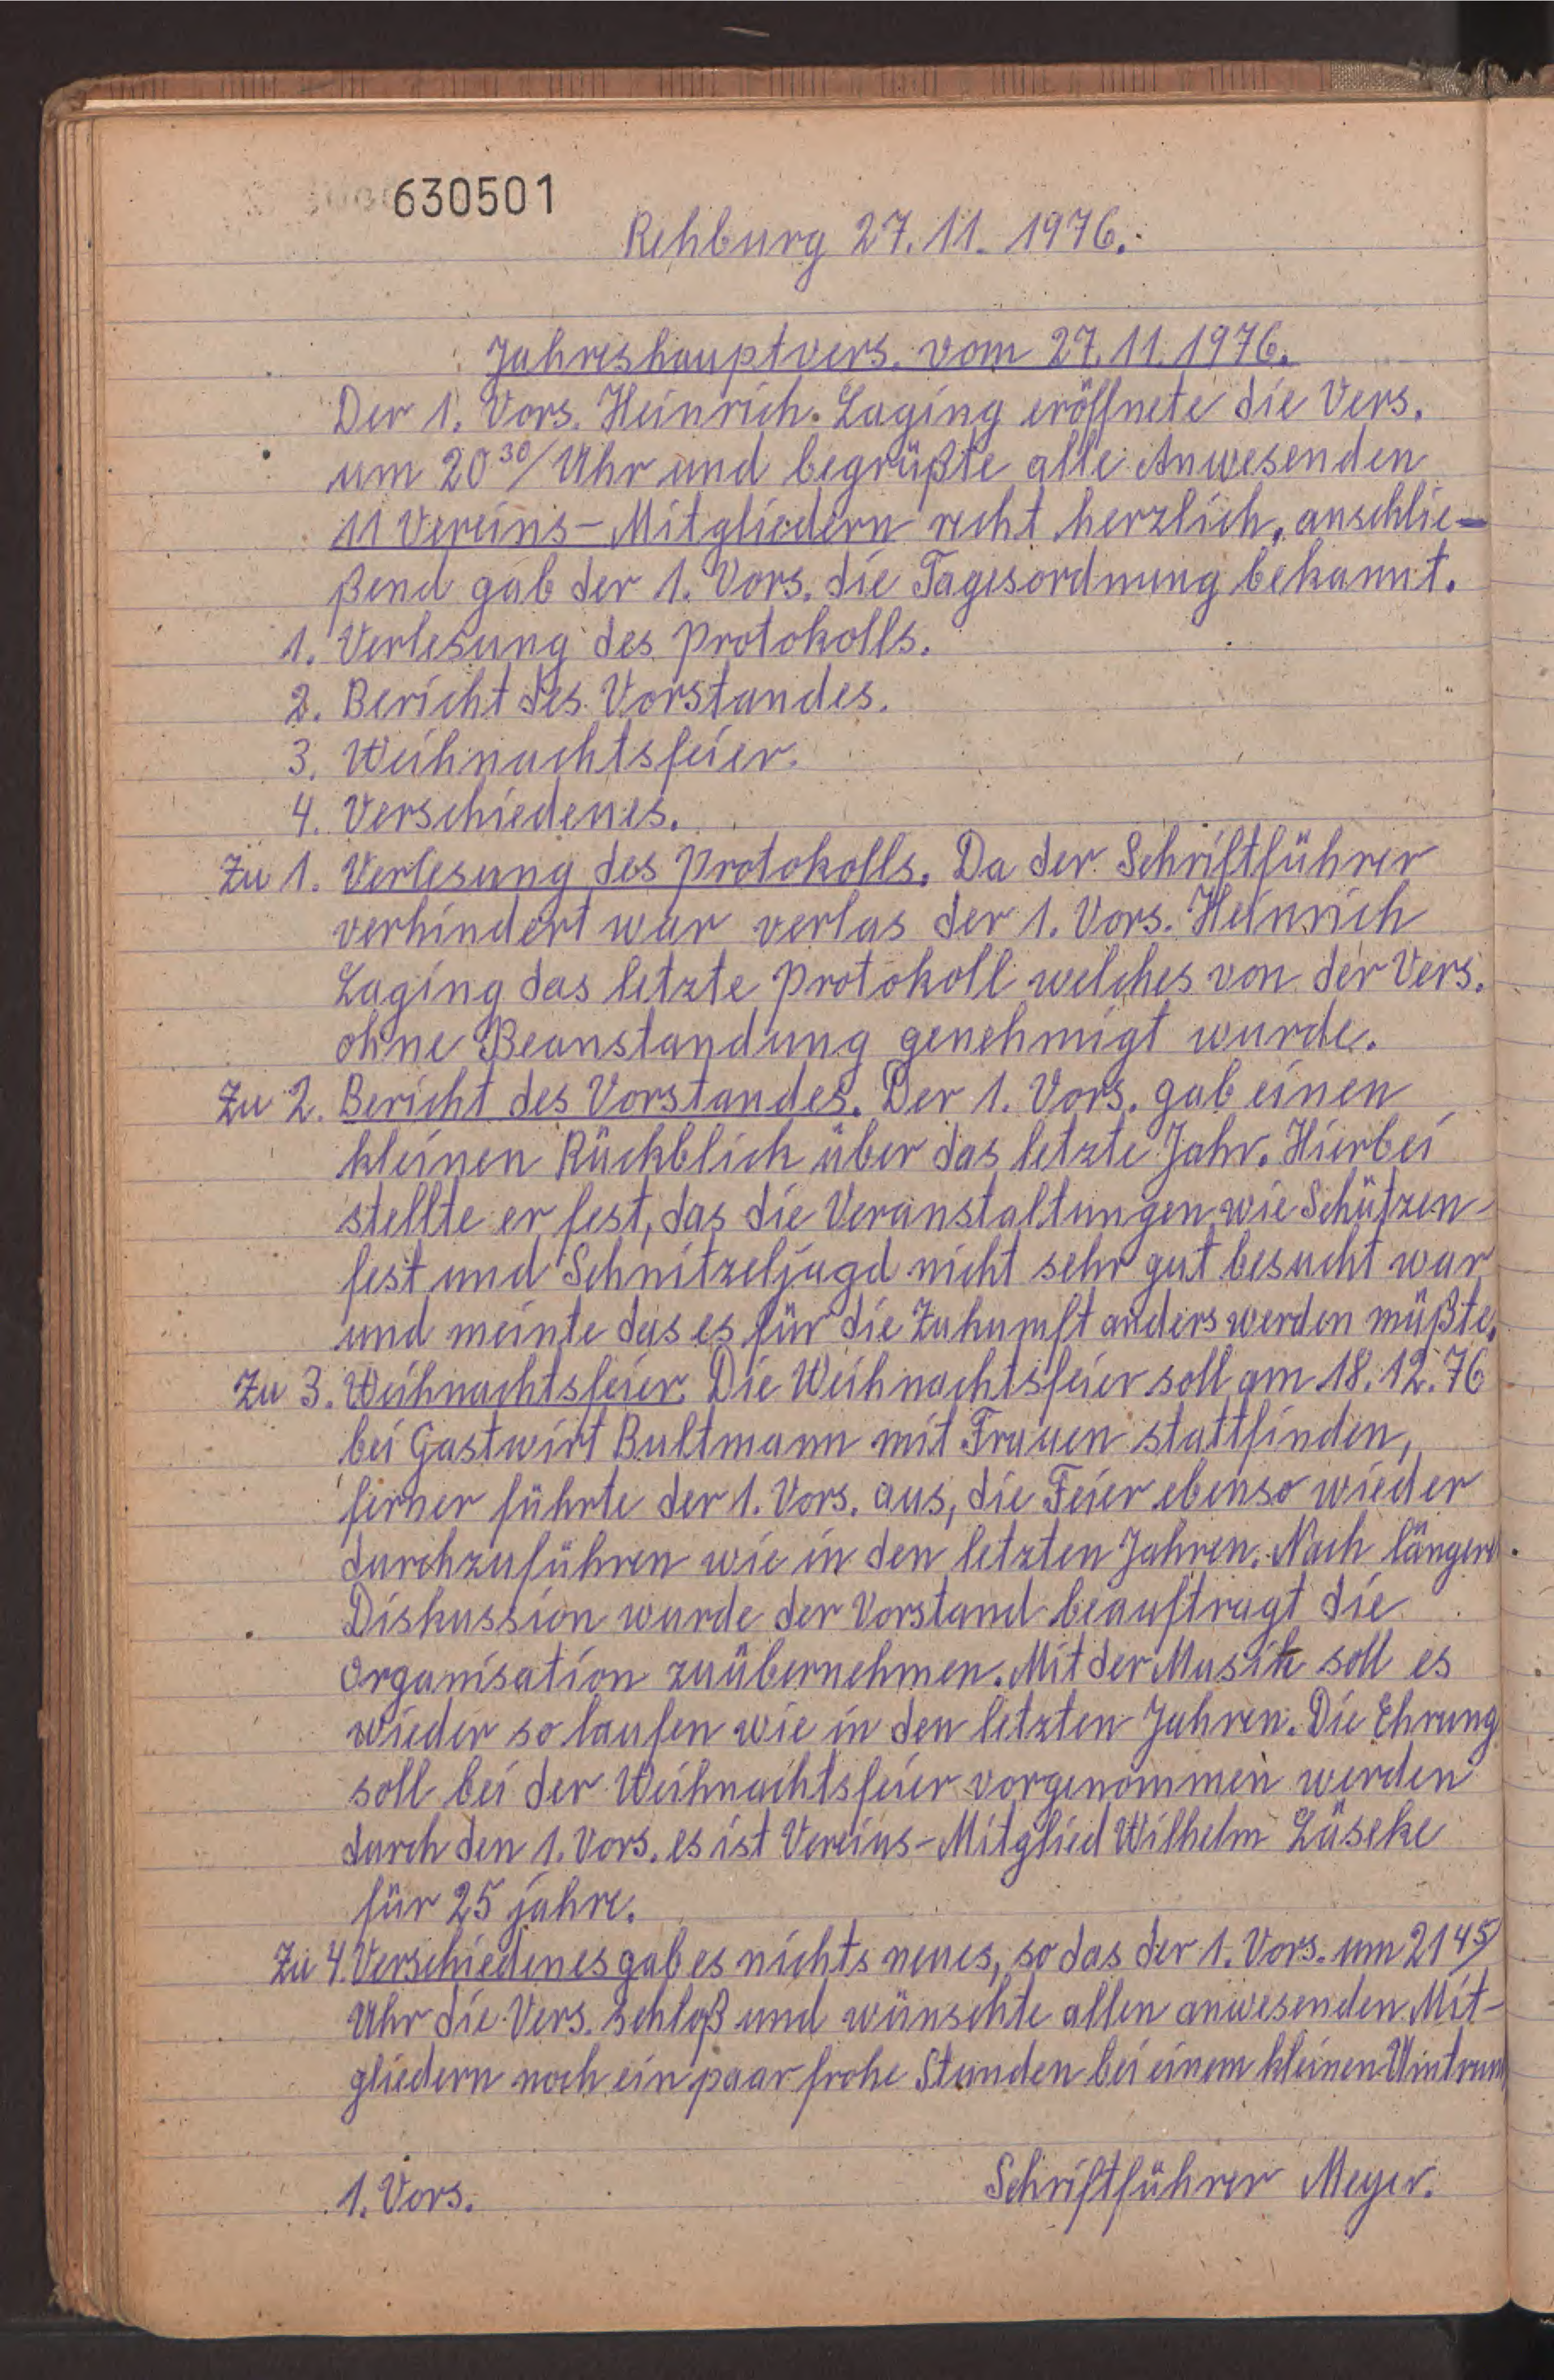 630501
Rehburg 27.11. 1976.
Jahreshauptvers. vom 27.11.1976.
Der 1. Vors. Heinrich. Laging eröffnete die Vers.
um 20³⁰/ Uhr und begrüßte alle Anwesenden
11 Vereins-Mitgliedern recht herzlich, anschlie-
ßend gab der 1. Vors. die Tagesordnung bekannt.
1. Verlesung des Protokolls.
2. Bericht des Vorstandes.
3. Weihnachtsfeier.
4. Verschiedenes.
Zu 1. Verlesung des Protokolls. Da der Schriftführer
verhindert war verlas der 1. Vors. Heinrich
Laging das letzte Protokoll welches von der Vers.
ohne Beanstandung genehmigt wurde.
Zu 2. Bericht des Vorstandes. Der 1. Vors. gab einen
kleinen Rückblick über das letzte Jahr. Hierbei
stellte er fest, das die Veranstaltungen wie Schützen-
fest und Schnitzeljagd nicht sehr gut besucht war
und meinte das es für die Zukumft anders werden müßte.
Zu 3. Weihnachtsfeier. Die Weihnachtsfeier soll am 18.12.76
bei Gastwirt Bultmann mit Frauen stattfinden,
ferner führte der 1. Vors. aus, die Feier ebenso wieder
durchzuführen wie in den letzten Jahren. Nach längere
Diskussion wurde der Vorstand beauftragt die
Organisation zuübernehmen. Mit der Musik soll es
wieder so laufen wie in den letzten Jahren. Die Ehrung
soll bei der Weihnachtsfeier vorgenommen werden
durch den 1. Vors. es ist Vereins-Mitglied Wilhelm Läseke
für 25 jahre.
Zu 4. Verschiedenes gab es nichts neues, so das der 1. Vors. um 21⁴⁵/
Uhr die Vers. schloß und wünschte allen anwesenden Mit-
gliedern noch ein paar frohe Stunden bei einem kleinen
1. Vors.
Schriftführer Meyer.